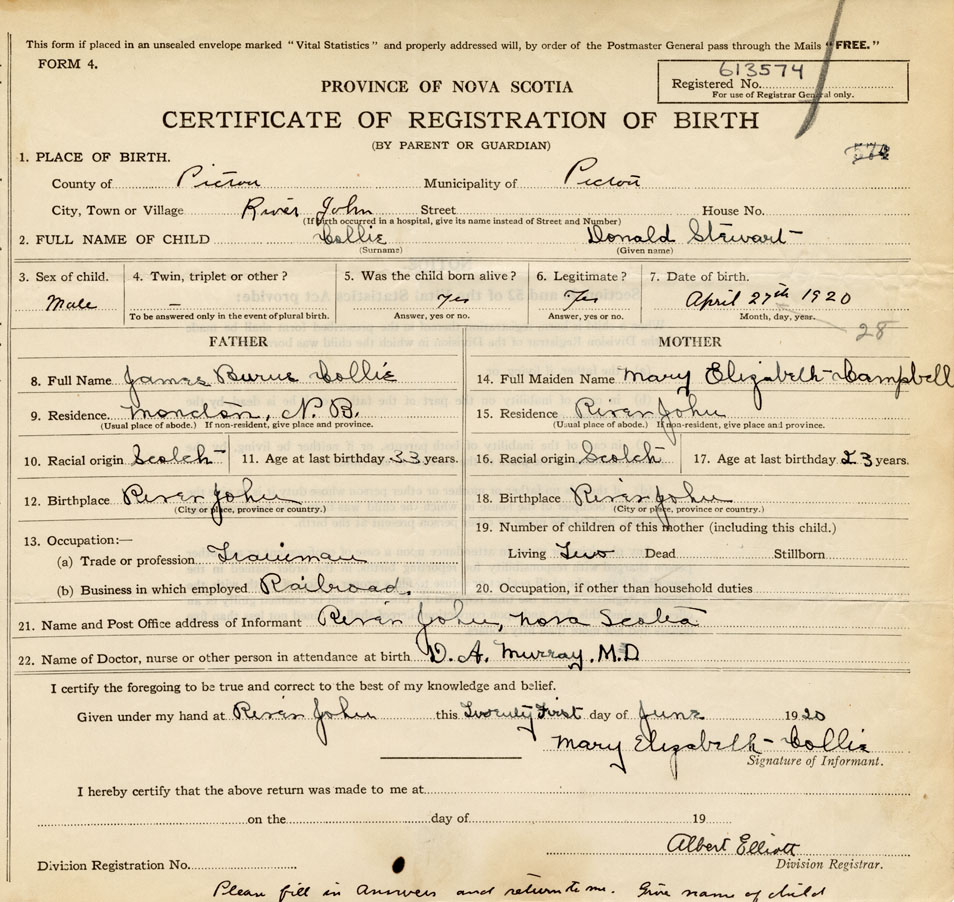 This form if placed in an unsealed envelope marked "Vital Statistics" and properly addressed will, by order of the Postmaster General pass through the Mails "FREE."
FORM 4.
613574
Registered No.
For use of Registrar General only.
PROVINCE OF NOVA SCOTIA
CERTIFICATE OF REGISTRATION OF BIRTH
(BY PARENT OR GUARDIAN)
1. PLACE OF BIRTH.
County of Pictou Municipality of Pictou
City, Town or Village River John Street House No.
(If birth occurred in a hospital, give its name instead of Street and Number)
2. FULL NAME OF CHILD Collie Donald Stewart
(Surname) (Given name)
3. Sex of child. 4. Twin, triplet or other? 5. Was the child born alive? 6. Legitimate? 7. Date of birth.
Male – yes Yes April 27th 1920
To be answered only in the event of plural birth. Answer, yes or no. Answer, yes or no. Month, day, year.
28
FATHER MOTHER
8. Full Name James Burns Collie 14. Full Maiden Name Mary Elizabeth Campbell
9. Residence Moncton, N.B. 15. Residence River John
(Usual place of abode.) If non-resident, give place and province. (Usual place of abode.) If non-resident, give place and province.
10. Racial origin Scotch 11. Age at last birthday 33 years. 16. Racial origin Scotch 17. Age at last birthday 23 years.
12. Birthplace River John 18. Birthplace River John
(City or place, province or country.) (City or place, province or country.)
19. Number of children of this mother (including this child.)
13. Occupation:—
(a) Trade or profession Trainman Living Two Dead Stillborn
(b) Business in which employed Railroad. 20. Occupation, if other than household duties
21. Name and Post Office address of Informant River John, Nova Scotia
22. Name of Doctor, nurse or other person in attendance at birth D. A. Murray. M.D
I certify the foregoing to be true and correct to the best of my knowledge and belief.
Given under my hand at River John this Twenty First day of June 1920
Mary Elizabeth Collie
Signature of Informant.
I hereby certify that the above return was made to me at
on the day of 19
Albert Elliott
Division Registration No. Division Registrar.
Please fill in answers and return to me. Give name of child